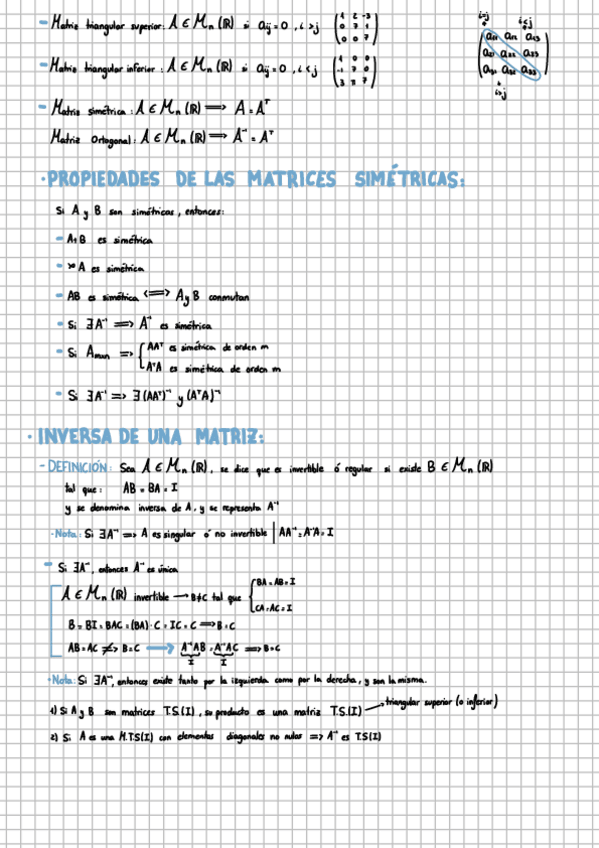 - Matriz triangular superior: A ∈ Mn (R) si aij = 0 , i > j (1 2 -3 / 0 7 1 / 0 0 7)
i=j i<j
(a11 a12 a13 / a21 a22 a23 / a31 a32 a33)
i>j
- Matriz triangular inferior: A ∈ Mn (R) si aij = 0 , i < j (1 0 0 / -1 7 0 / 3 8 7)
- Matriz simétrica: A ∈ Mn (R) ⟹ A = Aᵀ
Matriz Ortogonal: A ∈ Mn (R) ⟹ A⁻¹ = Aᵀ
· PROPIEDADES DE LAS MATRICES SIMÉTRICAS:
Si A y B son simétricas, entonces:
- A+B es simétrica
- A es simétrica
- AB es simétrica ⟺ A y B conmutan
- Si ∃A⁻¹ ⟹ A⁻¹ es simétrica
- Si Amxn ⟹ { AAᵀ es simétrica de orden m
AᵀA es simétrica de orden m
- Si ∃A⁻¹ => ∃(AAᵀ)⁻¹ y (AᵀA)⁻¹
· INVERSA DE UNA MATRIZ:
- DEFINICIÓN: Sea A ∈ Mn (R), se dice que es invertible ó regular si existe B ∈ Mn (R)
tal que: AB = BA = I
y se denomina inversa de A, y se representa A⁻¹
· Nota: Si ∃A⁻¹ => A es singular ó no invertible | AA⁻¹ = A⁻¹A = I
- Si ∃A⁻¹, entonces A⁻¹ es única
A ∈ Mn (R) invertible → B≠C tal que { BA = AB = I
CA = AC = I
B = BI = BAC = (BA)·C = IC = C ⟹ B = C
AB = AC ≠> B = C ⟶ A⁻¹AB = A⁻¹AC ⟹ B = C
I I
· Nota: Si ∃A⁻¹, entonces existe tanto por la izquierda como por la derecha, y son la misma.
1) Si A y B son matrices T.S.(I), su producto es una matriz T.S.(I) → triangular superior (o inferior)
2) Si A es una M.T.S(I) con elementos diagonales no nulos => A⁻¹ es T.S(I)